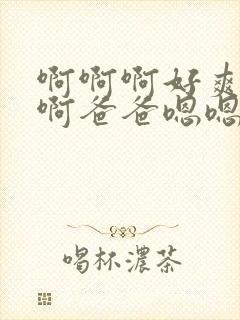 啊啊啊好爽
啊爸爸嗯嗯
喝杯濃茶